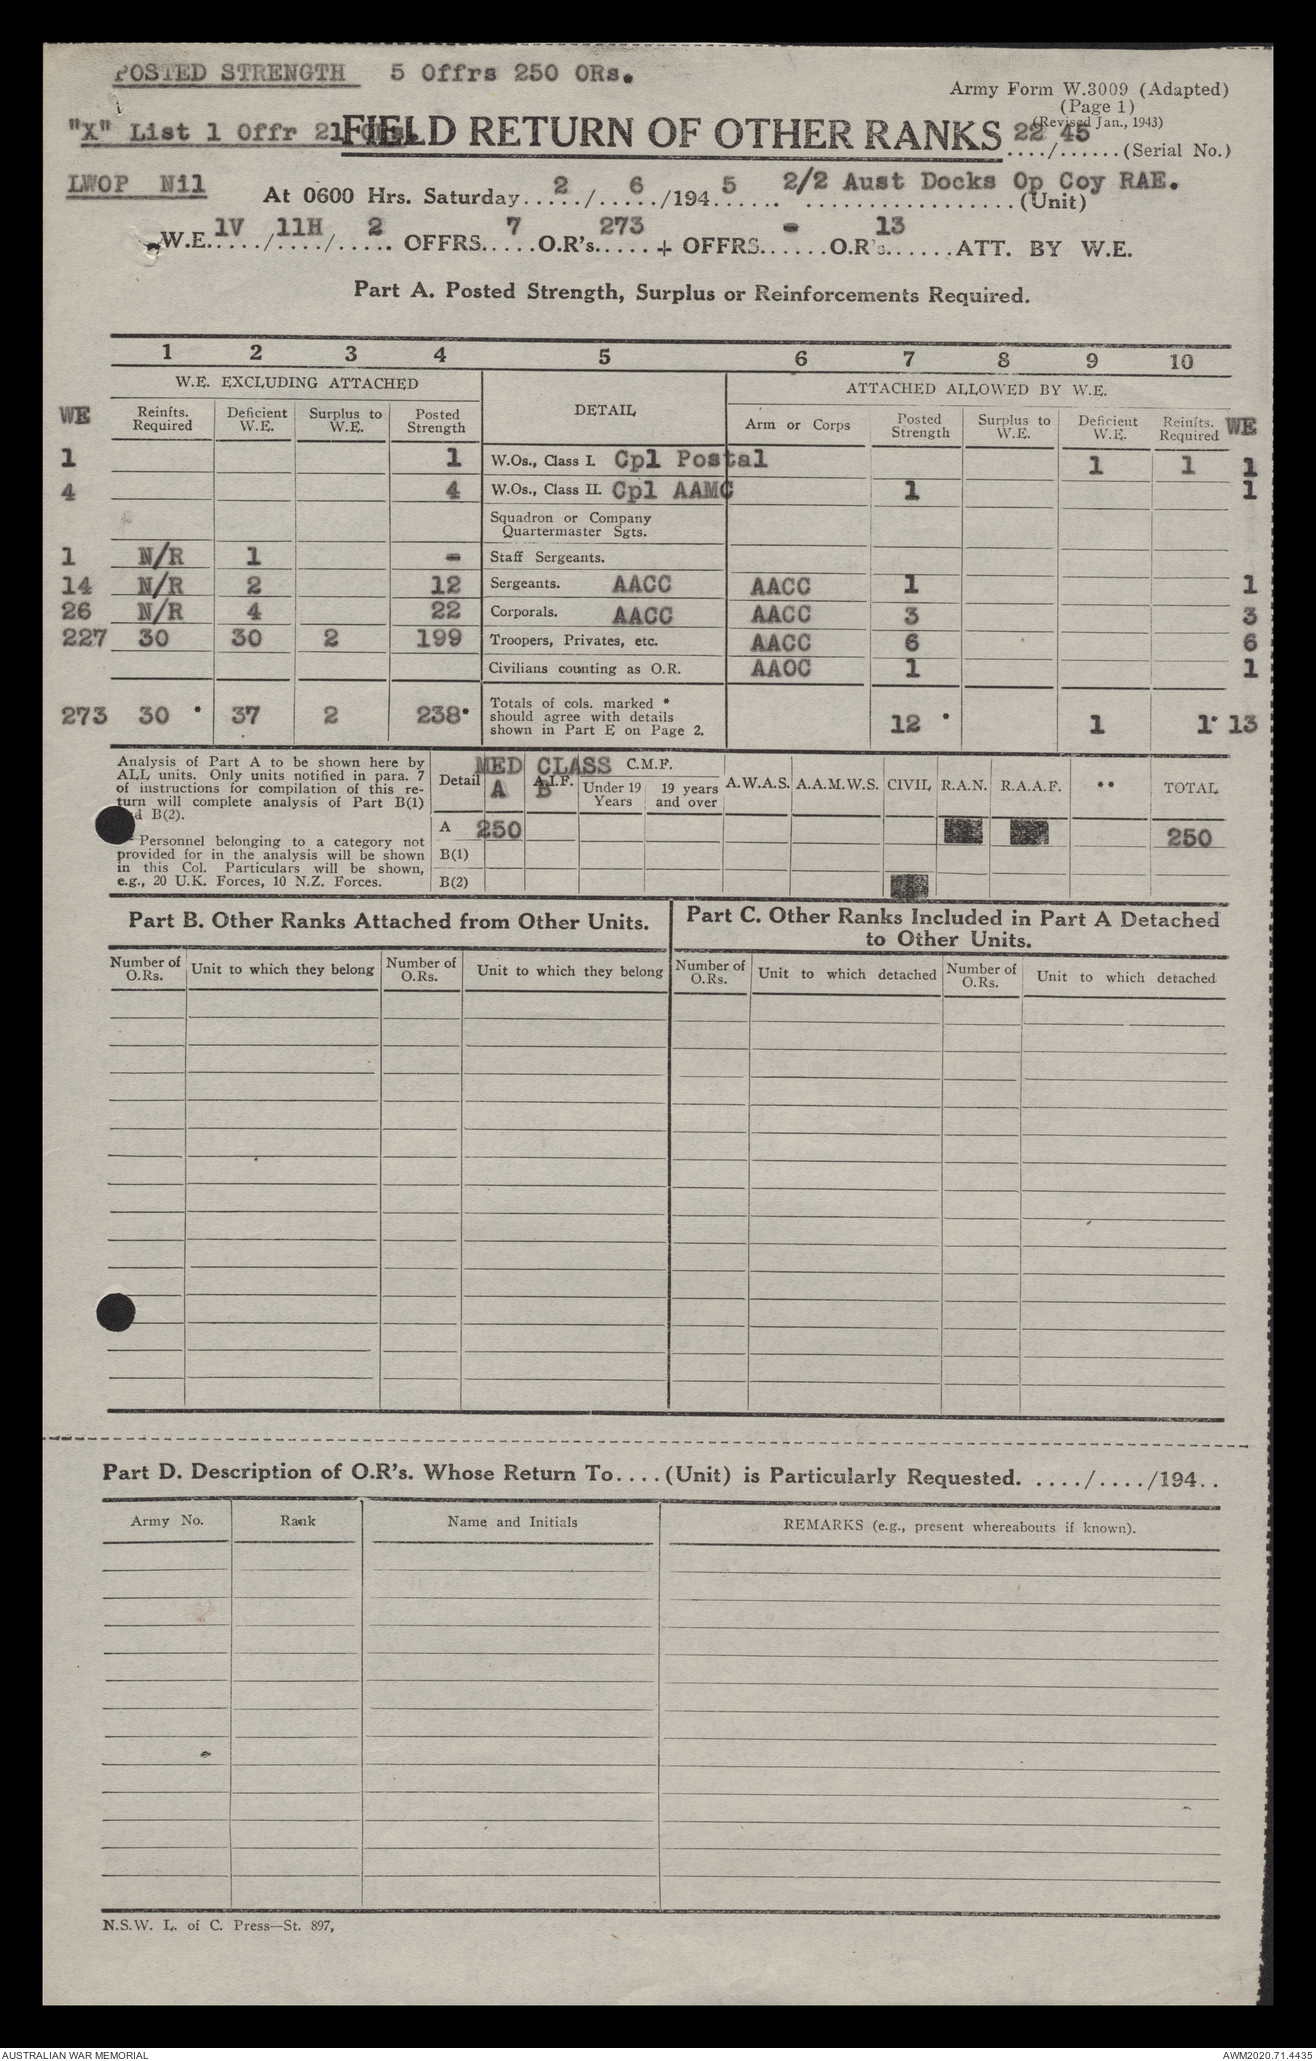 POSTED STRENGTH 5 Offrs 250 ORs.
Army Form W.3009 (Adapted)
(Page 1)
(Revised Jan., 1943)
"X" List 1 Offr 21 ORs.
FIELD RETURN OF OTHER RANKS 22/45 (Serial No.)
LWOP Nil
At 0600 Hrs. Saturday 2/6/1945 2/2 Aust Docks Op Coy RAE.
(Unit)
W.E. 1V/11H/2 OFFRS 7 O.R's 273 + OFFRS - O.R's 13 ATT. BY W.E.
Part A. Posted Strength, Surplus or Reinforcements Required.
1 2 3 4 5 6 7 8 9 10
W.E. EXCLUDING ATTACHED DETAIL ATTACHED ALLOWED BY W.E.
WE Reinfts. Required Deficient W.E. Surplus to W.E. Posted Strength Arm or Corps Posted Strength Surplus to W.E. Deficient W.E. Reinfts. Required WE
1 1 W.Os., Class I. Cpl Postal 1 1 1
4 4 W.Os., Class II. Cpl AAMC 1 1
Squadron or Company
Quartermaster Sgts.
1 N/R 1 - Staff Sergeants.
14 N/R 2 12 Sergeants. AACC AACC 1 1
26 N/R 4 22 Corporals. AACC AACC 3 3
227 30 30 2 199 Troopers, Privates, etc. AACC 6 6
Civilians counting as O.R. AAOC 1 1
273 30 * 37 2 238* Totals of cols. marked * should agree with details shown in Part E on Page 2. 12 * 1 1* 13
Analysis of Part A to be shown here by
ALL units. Only units notified in para. 7
of instructions for compilation of this re-
turn will complete analysis of Part B(1)
and B(2).
Personnel belonging to a category not
provided for in the analysis will be shown
in this Col. Particulars will be shown,
e.g., 20 U.K. Forces, 10 N.Z. Forces.
MED CLASS C.M.F.
Detail A A.I.F. B Under 19 Years 19 years and over A.W.A.S. A.A.M.W.S. CIVIL R.A.N. R.A.A.F. ** TOTAL
A 250 250
B(1)
B(2)
Part B. Other Ranks Attached from Other Units.
Part C. Other Ranks Included in Part A Detached
to Other Units.
Number of O.Rs. Unit to which they belong Number of O.Rs. Unit to which they belong Number of O.Rs. Unit to which detached Number of O.Rs. Unit to which detached
Part D. Description of O.R's. Whose Return To....(Unit) is Particularly Requested. ..../..../194..
Army No. Rank Name and Initials REMARKS (e.g., present whereabouts if known).
N.S.W. L. of C. Press—St. 897,
AUSTRALIAN WAR MEMORIAL
AWM2020.71.4435